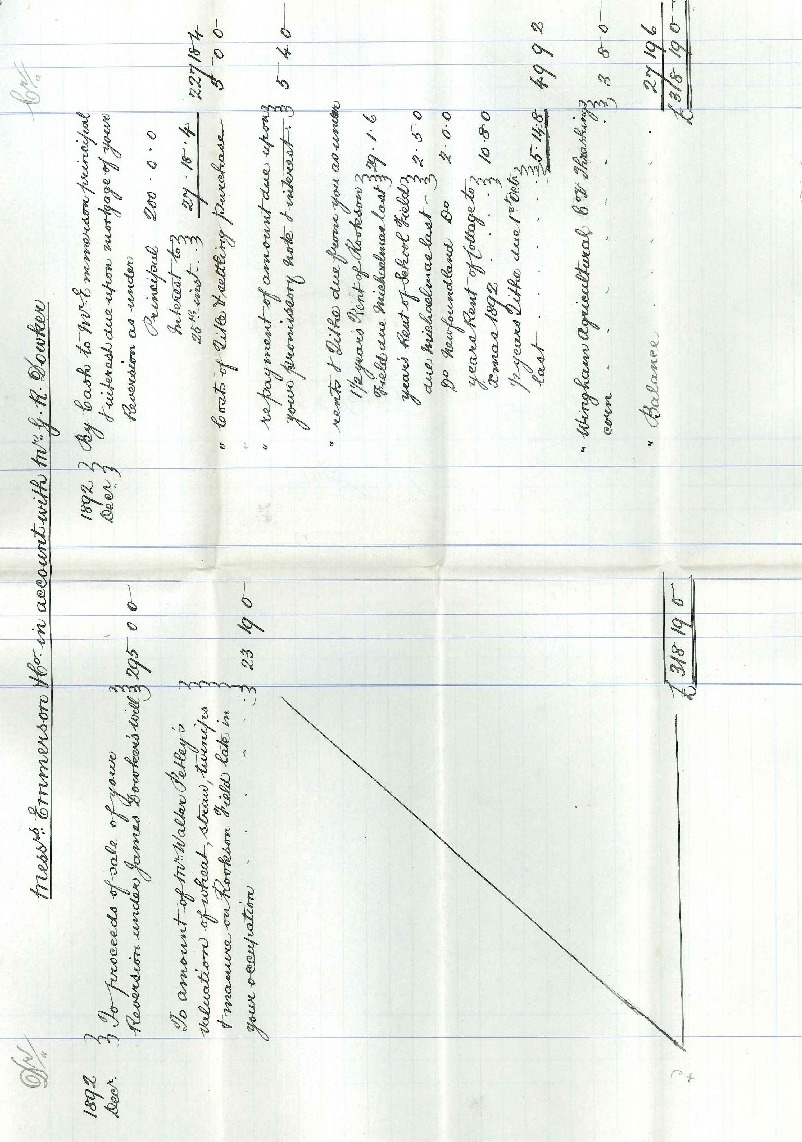 Messrs. Emmerson & Co. in account with Mr. G. R. Dowker
Dr.
1892
Decr.
To proceeds of sale of your
Reversion under James Dowker's will 295 0 0
To amount of Mr. Walter Petley's
valuation of wheat, straw, turnips
& manure on Rookson Field late in
your occupation 23 19 0
£ 318 19 0
Cr.
1892
Decr.
By Cash to Mr. Emmerson principal
& interest due upon mortgage of your
Reversion as under
Principal 200 . 0 . 0
Interest to
25th inst. 27 . 18 . 4 227 18 4
" Costs of title & settling purchase 5 0 0
" repayment of amount due upon
your promissory note & interest 5 4 0
" rents & Tithe due from you as under
1½ years Rent of Rookson
Field due Michaelmas last 29 . 1 . 6
years Rent of School Field
due Michaelmas last 2 . 5 . 0
Do Newfoundland Do 2 . 0 . 0
years Rent of Cottage to
Xmas 1892 10 . 8 . 0
½ years Tithe due 1st Octr.
last 5 . 14 . 8 49 9 2
" Wingham Agricultural Co. Thrashing
corn 3 8 0
" Balance 27 19 6
£ 318 19 0